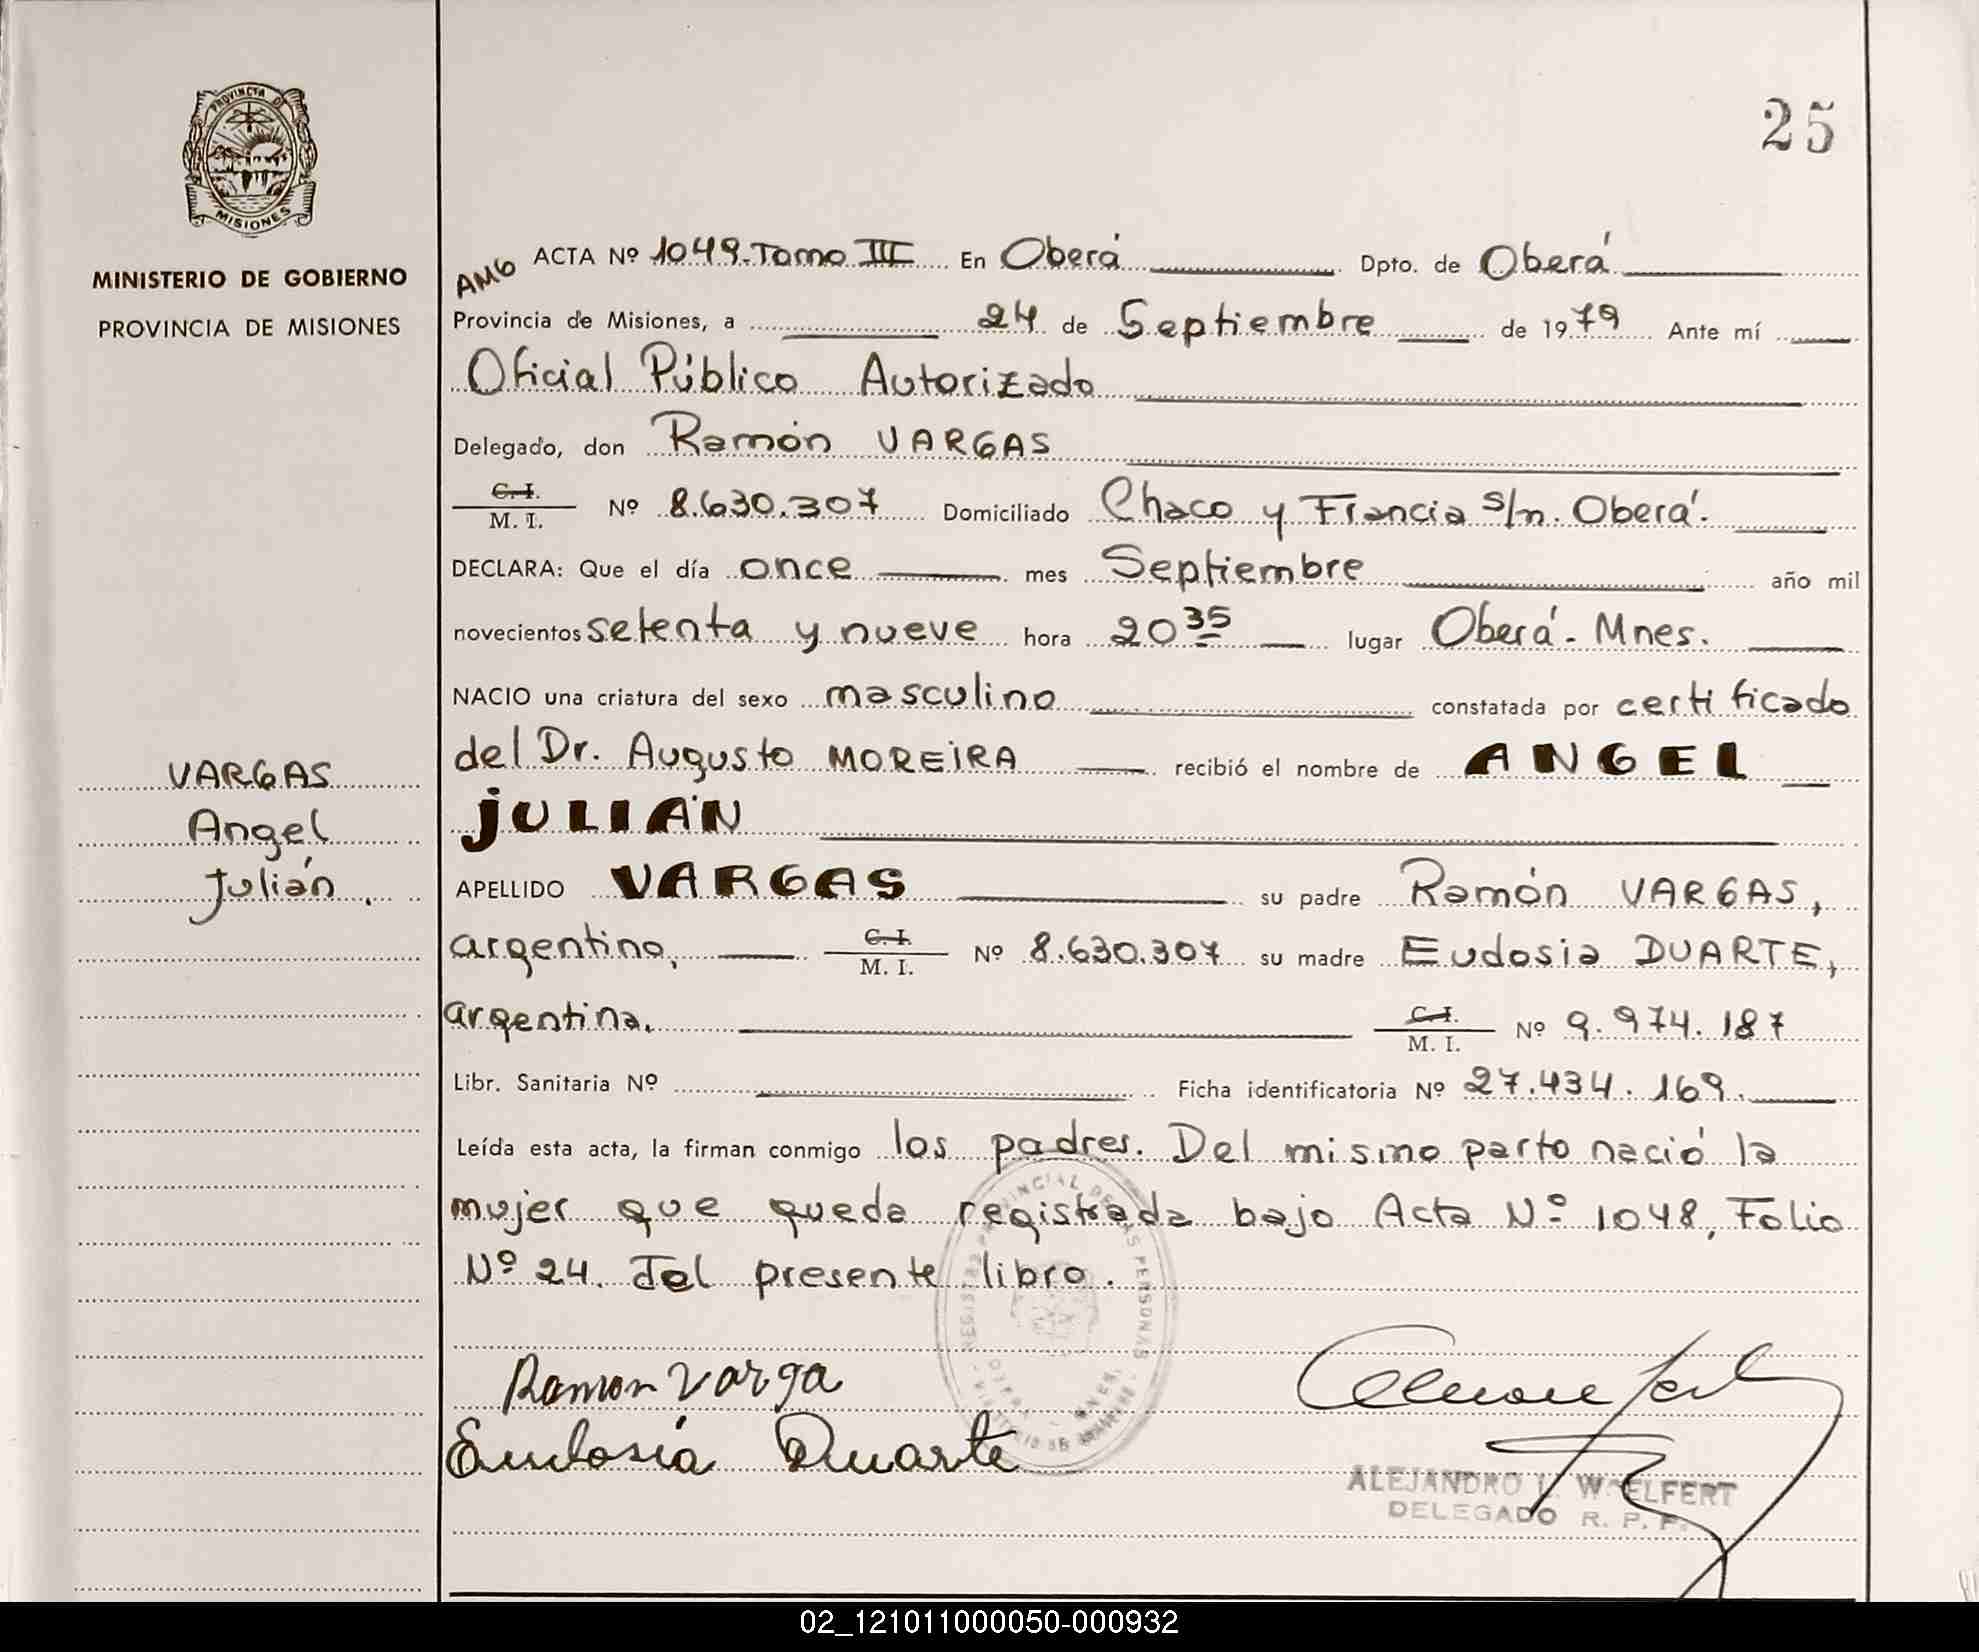 25
PROVINCIA DE
MISIONES
MINISTERIO DE GOBIERNO
PROVINCIA DE MISIONES
VARGAS
Angel
Julián.
AMG
ACTA Nº 1049-Tomo III En Oberá Dpto. de Oberá
Provincia de Misiones, a 24 de Septiembre de 1979 Ante mí
Oficial Público Autorizado
Delegado, don Ramón VARGAS
C. I. / M. I. Nº 8.630.307 Domiciliado Chaco y Francia s/n. Oberá.
DECLARA: Que el día once mes Septiembre año mil
novecientos setenta y nueve hora 20 35 lugar Oberá - Mnes.
NACIO una criatura del sexo masculino constatada por certificado
del Dr. Augusto MOREIRA recibió el nombre de ANGEL
JULIÁN
APELLIDO VARGAS su padre Ramón VARGAS,
argentino, C. I. / M. I. Nº 8.630.307 su madre Eudosia DUARTE,
argentina. C. I. / M. I. Nº 9.974.187
Libr. Sanitaria Nº Ficha identificatoria Nº 27.434.169.
Leída esta acta, la firman conmigo los padres. Del mismo parto nació la
mujer que queda registrada bajo Acta Nº 1048, Folio
Nº 24. del presente libro.
Ramon Varga
Eudosia Duarte
REGISTRO PROVINCIAL DE LAS PERSONAS
ALEJANDRO L. WOELFERT
DELEGADO R. P. P.
02_121011000050-000932